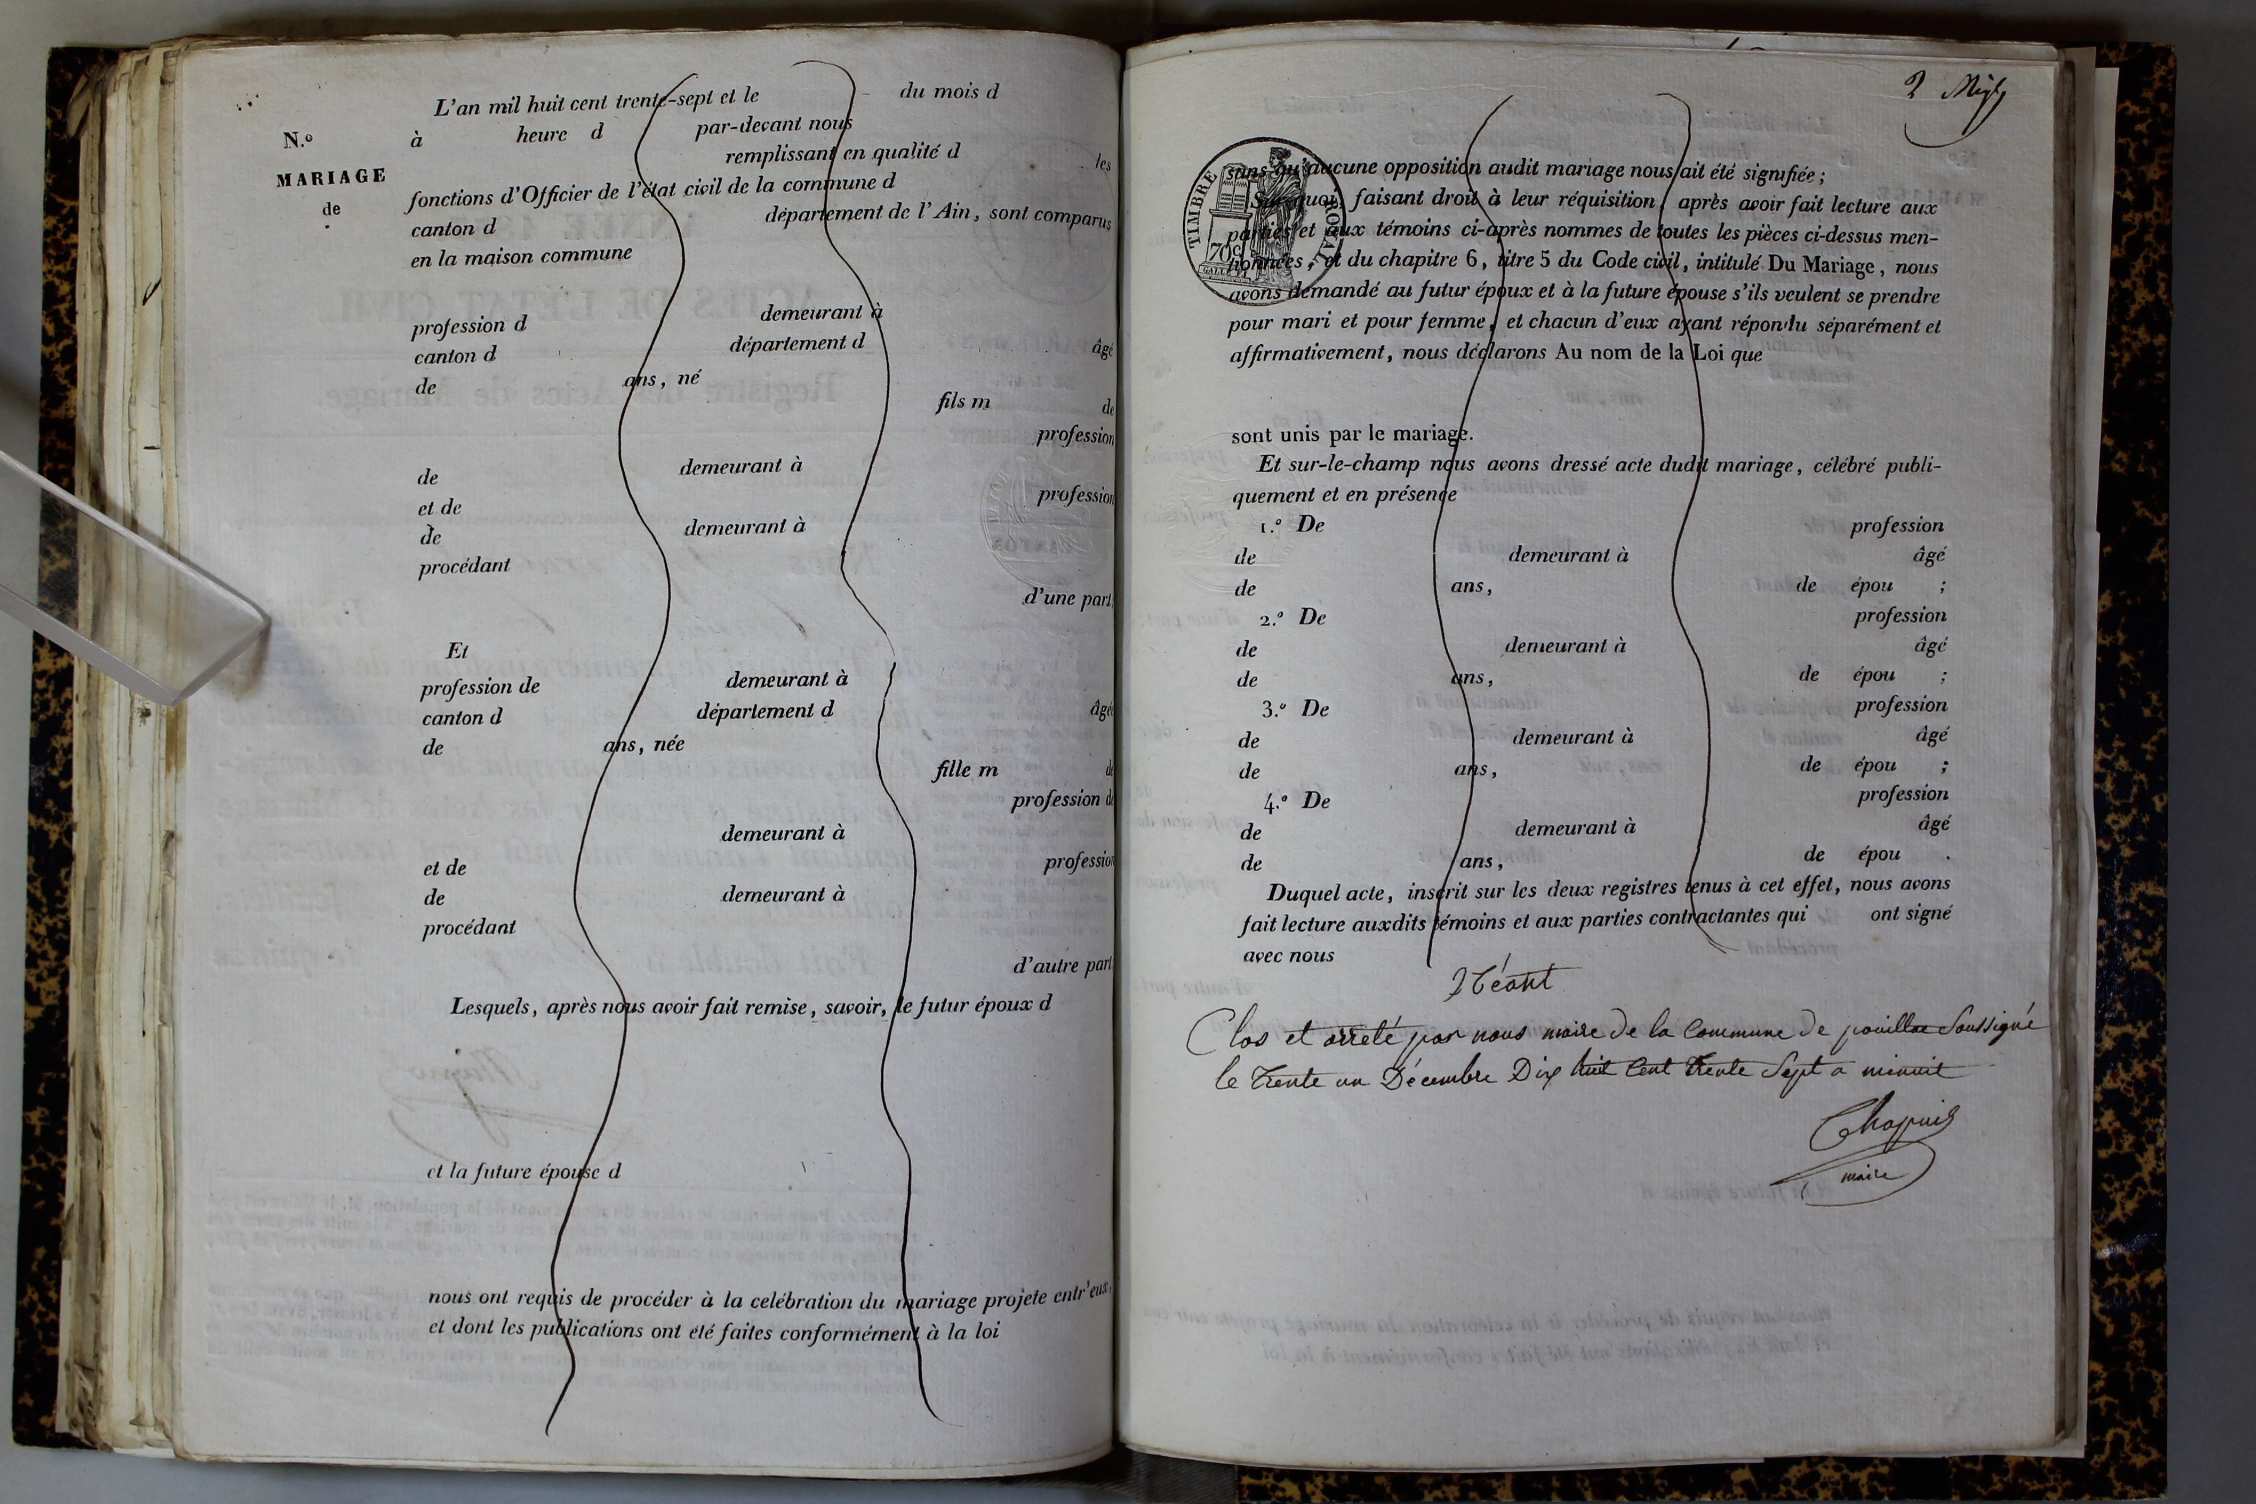 L'an mil huit cent trente-sept et le du mois d
N.º à heure d par-devant nous
remplissant en qualité d les
MARIAGE
de
fonctions d'Officier de l'état civil de la commune d
canton d département de l'Ain, sont comparus
en la maison commune
profession d demeurant à
canton d département d âgé
de ans, né
fils m de
profession
de demeurant à
et de profession
de demeurant à
procédant
d'une part,
Et
profession de demeurant à
canton d département d âgée
de ans, née
fille m de
profession de
demeurant à
et de profession
de demeurant à
procédant
d'autre part
Lesquels, après nous avoir fait remise, savoir, le futur époux d
et la future épouse d
nous ont requis de procéder à la celébration du mariage projete entr'eux,
et dont les publications ont été faites conformément à la loi
2
TIMBRE ROYAL
70c
sans qu'aucune opposition audit mariage nous ait été signifiée;
Sur quoi, faisant droit à leur réquisition, après avoir fait lecture aux
parties et aux témoins ci-après nommes de toutes les pièces ci-dessus men-
tionnées, et du chapitre 6, titre 5 du Code civil, intitulé Du Mariage, nous
avons demandé au futur époux et à la future épouse s'ils veulent se prendre
pour mari et pour femme, et chacun d'eux ayant répondu séparément et
affirmativement, nous déclarons Au nom de la Loi que
sont unis par le mariage.
Et sur-le-champ nous avons dressé acte dudit mariage, célébré publi-
quement et en présence
1.º De profession
de demeurant à âgé
de ans, de épou ;
2.º De profession
de demeurant à âgé
de ans, de épou ;
3.º De profession
de demeurant à âgé
de ans, de épou ;
4.º De profession
de demeurant à âgé
de ans, de épou .
Duquel acte, inscrit sur les deux registres tenus à cet effet, nous avons
fait lecture auxdits témoins et aux parties contractantes qui ont signé
avec nous
Néant
Clos et arreté par nous maire de la Commune de pouillae Soussigné
le trente un Décembre Dix huit Cent trente Sept a minuit
Chapuis
maire